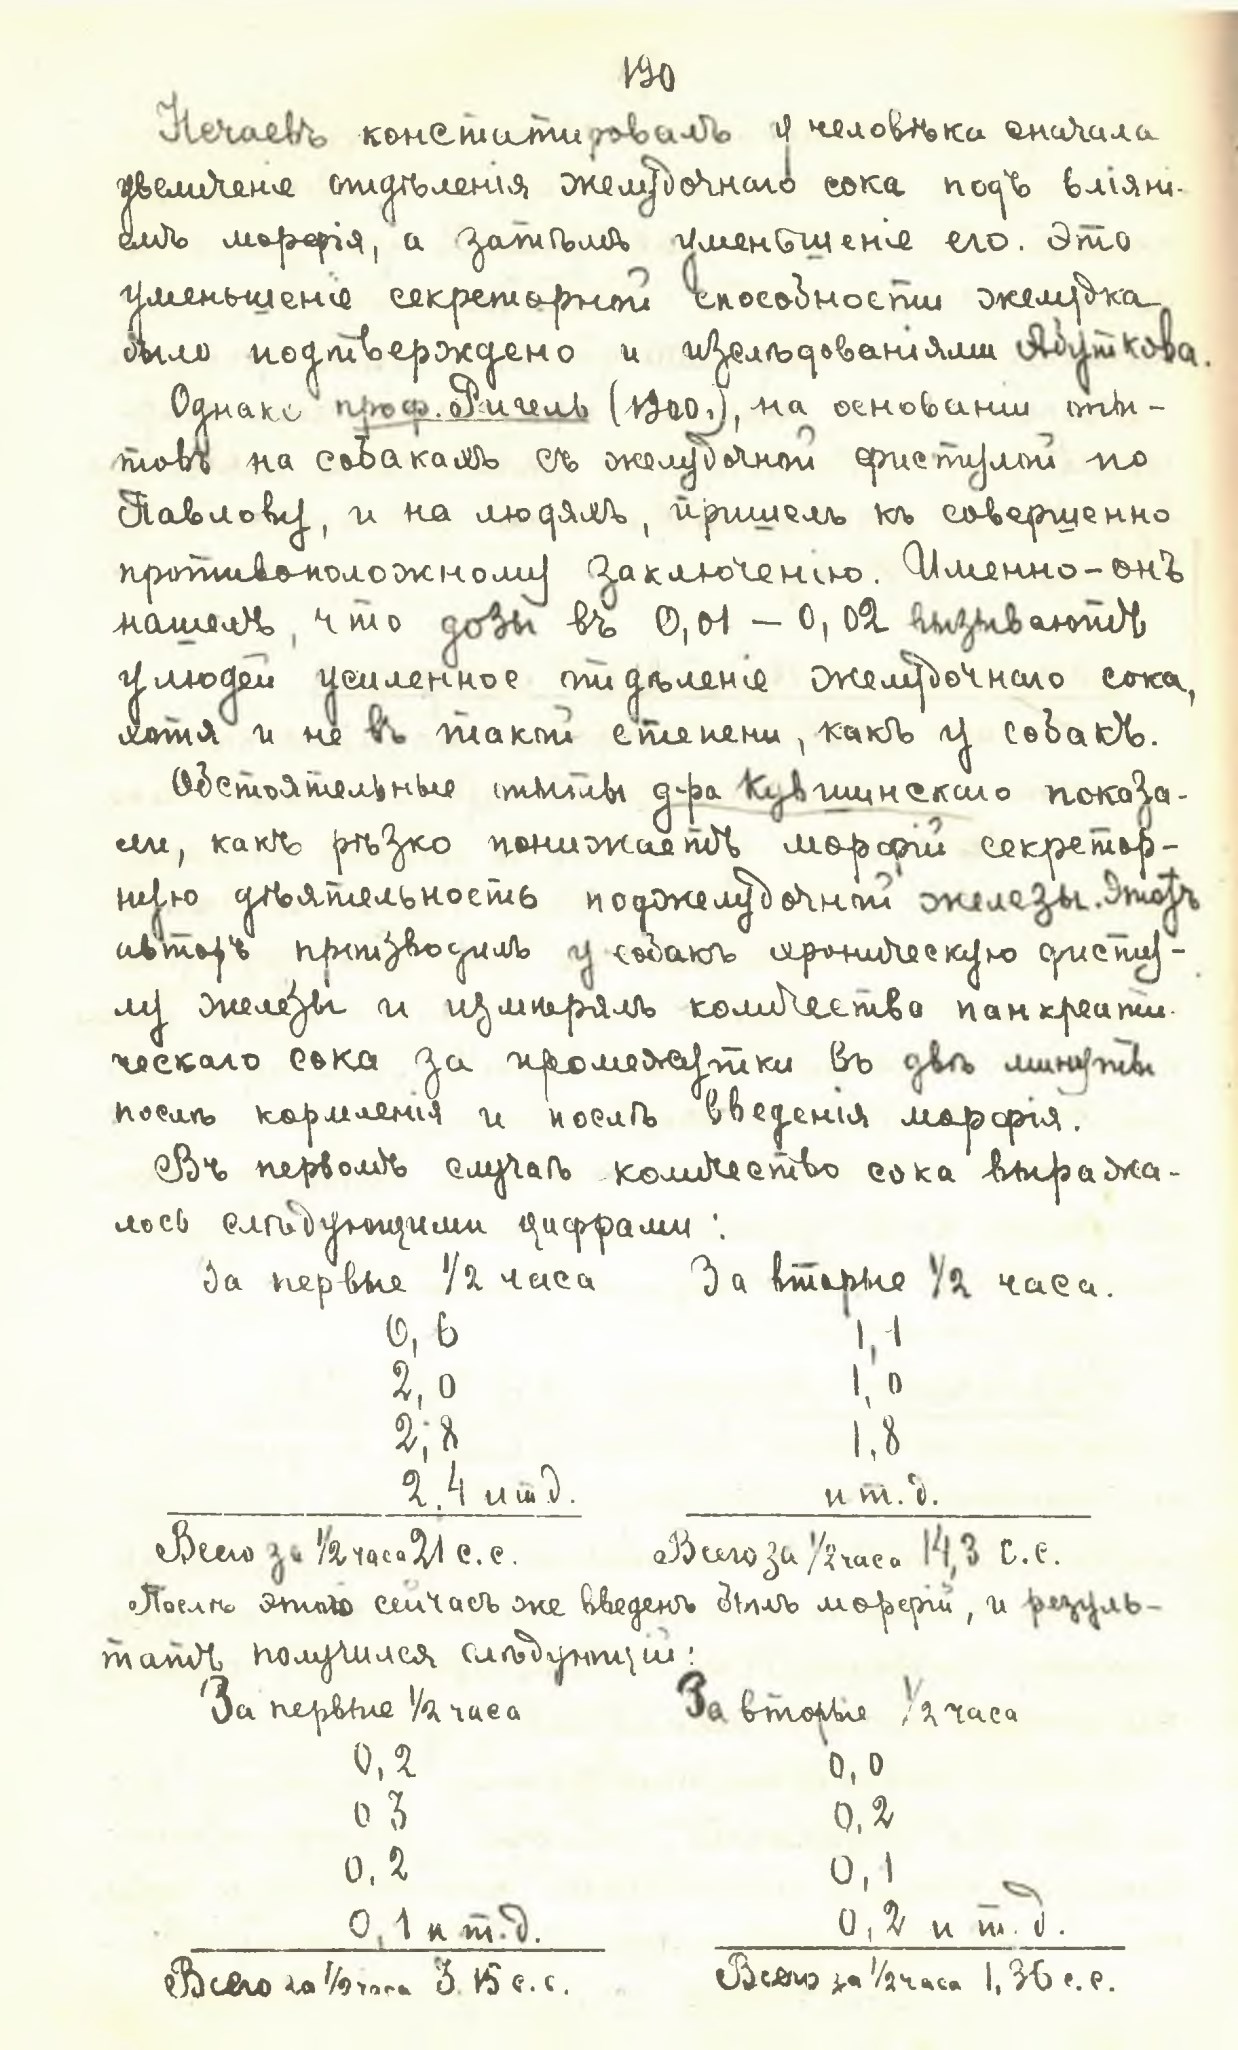 190
Нечаевъ констатировалъ у человѣка сначала
увеличеніе отдѣленія желудочнаго сока подъ вліяні-
емъ морфія, а затѣмъ уменьшеніе его. Это
уменьшеніе секреторной способности желудка
было подтверждено и изслѣдованіями Абуткова.
Однако проф. Ригель (1900.), на основаніи опы-
товъ на собакахъ съ желудочной фистулой по
Павлову, и на людяхъ, пришелъ къ совершенно
противоположному заключенію. Именно-онъ
нашелъ, что дозы въ 0,01 – 0,02 вызываютъ
у людей усиленное отдѣленіе желудочнаго сока,
хотя и не въ такой степени, какъ у собакъ.
Обстоятельные опыты д-ра Кувшинскаго показа-
ли, какъ рѣзко понижаетъ морфій секретор-
ную дѣятельность поджелудочной железы. Этотъ
авторъ производилъ у собакъ хроническую фисту-
лу железы и измѣрялъ количества панкреати-
ческаго сока за промежутки въ двѣ минуты
послѣ кормленія и послѣ введенія морфія.
Въ первомъ случаѣ количество сока выража-
лось слѣдующими цифрами:
За первые 1/2 часа За вторые 1/2 часа.
0,6 1,1
2,0 1,0
2,8 1,8
2,4 и т.д. и т.д.
Всего за 1/2 часа 21 с.с. Всего за 1/2 часа 14,3 с.с.
Послѣ этого сейчасъ же введенъ былъ морфій, и резуль-
татъ получился слѣдующій:
За первые 1/2 часа За вторые 1/2 часа
0,2 0,0
0 3 0,2
0,2 0,1
0,1 и т.д. 0,2 и т.д.
Всего за 1/2 часа 3,15 с.с. Всего за 1/2 часа 1,36 с.с.